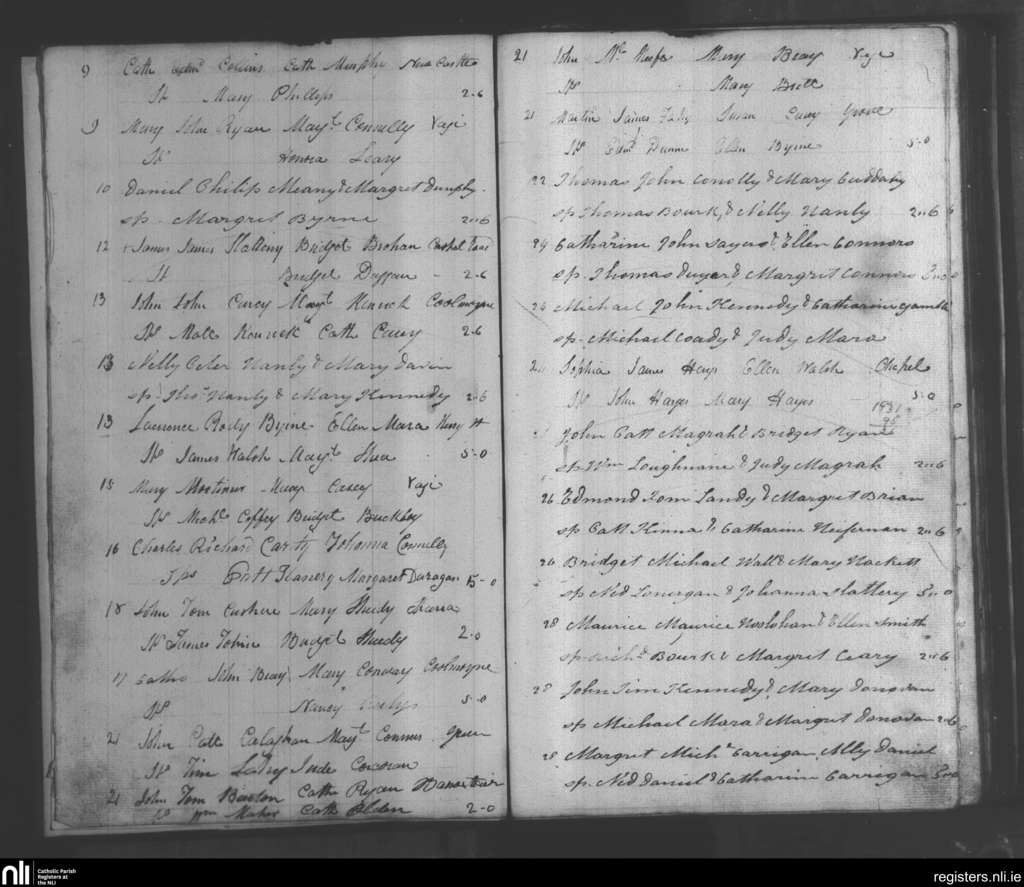 9 Cath Edmd Collins Cath Murphy New Castle
Sp Mary Phillips 2-6
9 Mary John Ryan Mayt Connelly
Sp Honora Leary
10 Daniel Philip Meany & Margret Dunphy
sp. Margret Byrne 2=6
12 James James Slattery Bridget Brohan
Sp Bridget 2-6
13 John John Carey Mayt Coolmoyne
Sp Cath Carey 2-6
13 Nelly Peter Hanly & Mary Davin
sp. Thos Hanly & Mary Kennedy 2=6
13 Laurence Rody Byrne Ellen Mara
Sp James Walsh Mayt Shea 5-0
15 Mary Mortimer Mary Casey
Sp Michl Coffey Bridget Buckley
16 Charles Richard Johanna Connelly
Sps Patt Margaret 5-0
18 John Tom Mary Sheedy
Sp James Tobin Bridget Sheedy 2-0
John Mary Conway Coolmoyne
Sp Nancy 5-0
21 John Patt Calaghan Mayt Connors Green
Sp Tim Jude Corcoran
21 John Tom Cath Ryan
Sp Wm Maher Cath 2-0
21 John Mc Mary
Sp Mary
21 Martin James Fahy Susan Carey Grove
Sp Edmd Dunne Ellen Byrne 5-0
22 Thomas John Conolly & Mary Cuddahy
sp Thomas Bourk, & Nelly Hanly 2=6
24 Catharine John Sayers & Ellen Connors
sp. Thomas Dwyer & Margrit Connors 5=0
24 Michael John Kennedy & Catharine
sp. Michael Coady & Judy Mara
Sophia James Hays Ellen Walsh Chapel
Sp John Hayes Mary Hayes 5-0
1831
95
John Patt Magrah & Bridget Ryan
sp. Wm Loughnane & Judy Magrah 2=6
26 Edmond Tom Landy & Margret Brian
sp Patt Kinna & Catharine Heffernan 2=6
26 Bridget Michael Wall & Mary Hackett
sp Ned Lonergan & Johanna Slattery 5=0
28 Maurice Maurice & Ellen Smith
sp Richd Bourk & Margrit Leary 2=6
28 John Jim Kennedy & Mary Donovan
sp Michael Mara & Margrit Donovan 2=6
28 Margret Michl Carrigan Ally Daniel
sp. Ned Daniel & Catharine Carrigan 5=0
nli Catholic Parish
Registers at
the NLI
registers.nli.ie